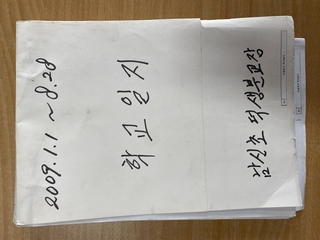 2009.1.1 ~ 8.28
학교일지
남신초 덕생분교장